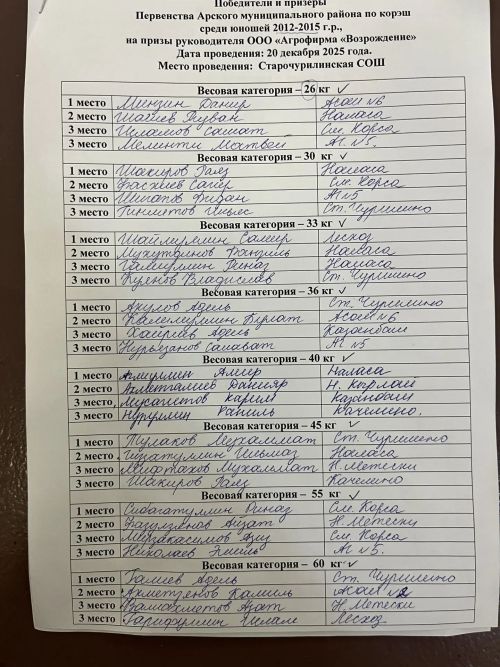 Победители и призеры
Первенства Арского муниципального района по корэш
среди юношей 2012-2015 г.р.,
на призы руководителя ООО «Агрофирма «Возрождение»
Дата проведения: 20 декабря 2025 года.
Место проведения: Старочурилинская СОШ
Весовая категория – 26 кг ✓
1 место Данир Асош №6
2 место Наласа
3 место Исламов Самат См. Корса
3 место Матвей Аг. №5.
Весовая категория – 30 кг ✓
1 место Шакиров Раяз Наласа
2 место Сагир См. Корса
3 место Аг №5
3 место Ильяс Ст. Чурилино
Весовая категория – 33 кг ✓
1 место Самир Лесхоз
2 место Мухутдинов Наласа
3 место Риназ Наласа
3 место Владислав Ст. Чурилино
Весовая категория – 36 кг ✓
1 место Адель Ст. Чурилино
2 место Булат Асош №6
3 место Хайриев Адель Казанбаш
3 место Нурьязанов Салават Аг №5
Весовая категория – 40 кг ✓
1 место Амир Наласа
2 место Ахметгалиев Данияр Н. Кырлай
3 место Карим Казанбаш
3 место Нуруллин Раниль Качелино.
Весовая категория – 45 кг ✓
1 место Тулаков Мухаммат Ст. Чурилино
2 место Иззатуллин Ильназ Наласа
3 место Мифтахов Мухаммат Н. Метески
3 место Шакиров Раяз Качелино
Весовая категория – 55 кг ✓
1 место Сибагатуллин Риназ См. Корса
2 место Азат Н. Метески
3 место Мирзакасимов Азиз См. Корса
3 место Николаев Эмиль Аг №5.
Весовая категория – 60 кг ✓
1 место Галиев Адель Ст. Чурилино
2 место Ахметзянов Камиль Асош №2
3 место Азат Н. Метески
3 место Гарифуллин Лесхоз